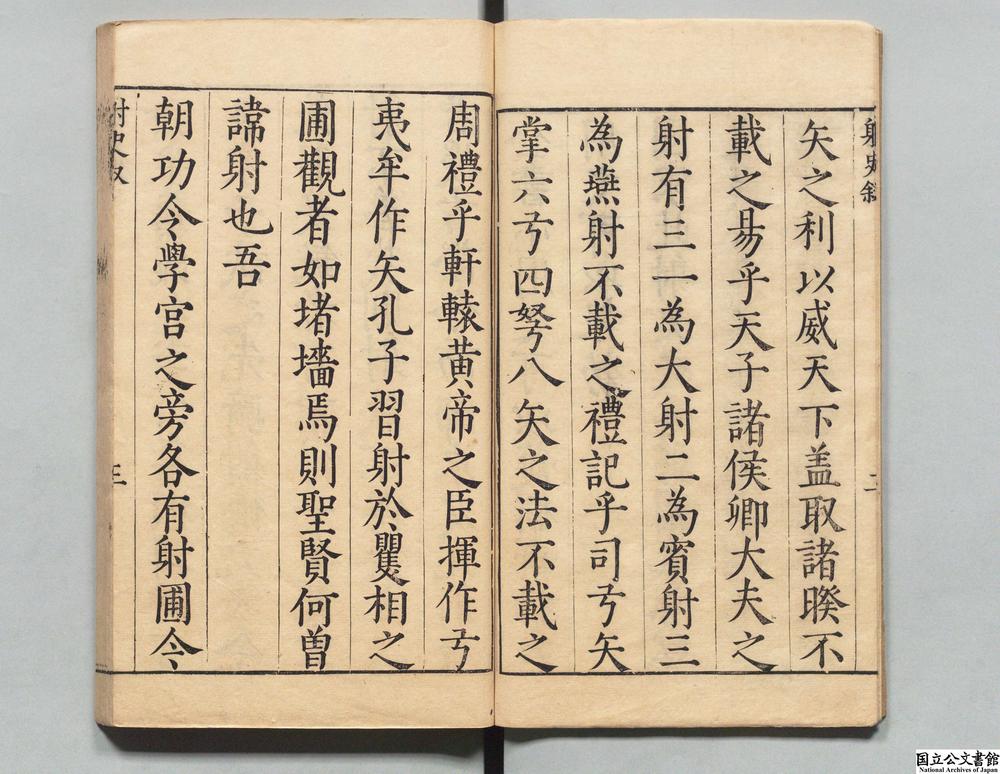 射史敘
矢之利以威天下盖取諸暌不
載之易乎天子諸侯卿大夫之
射有三一為大射二為賓射三
為燕射不載之禮記乎司弓矢
掌六弓四弩八矢之法不載之
二
周禮乎軒轅黄帝之臣揮作弓
夷牟作矢孔子習射於矍相之
圃觀者如堵墻焉則聖賢何曽
諱射也吾
朝功令學宫之旁各有射圃令
射史敘
三
国立公文書館
National Archives of Japan